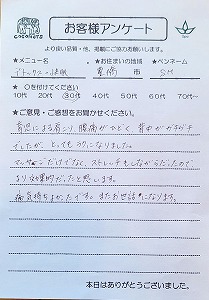 COCONUTS
お客様アンケート
より良い品質・他、掲載にご協力お願いします。
★メニュー名 ★お住まいの地域 ★ペンネーム
市 SM
★○を付けてください
10代 20代 30代 40代 50代 60代 70代~
★ご意見・ご感想をお聞かせください。
育児による肩こり、腰痛がひどく、背中がガチガチ
でしたが、とってもラクになりました。
マッサージだけでなく、ストレッチもしながらだったので、
より効果的だったと思します。
痛気持ちよかったです。またお世話になります。
本日はありがとうございました。